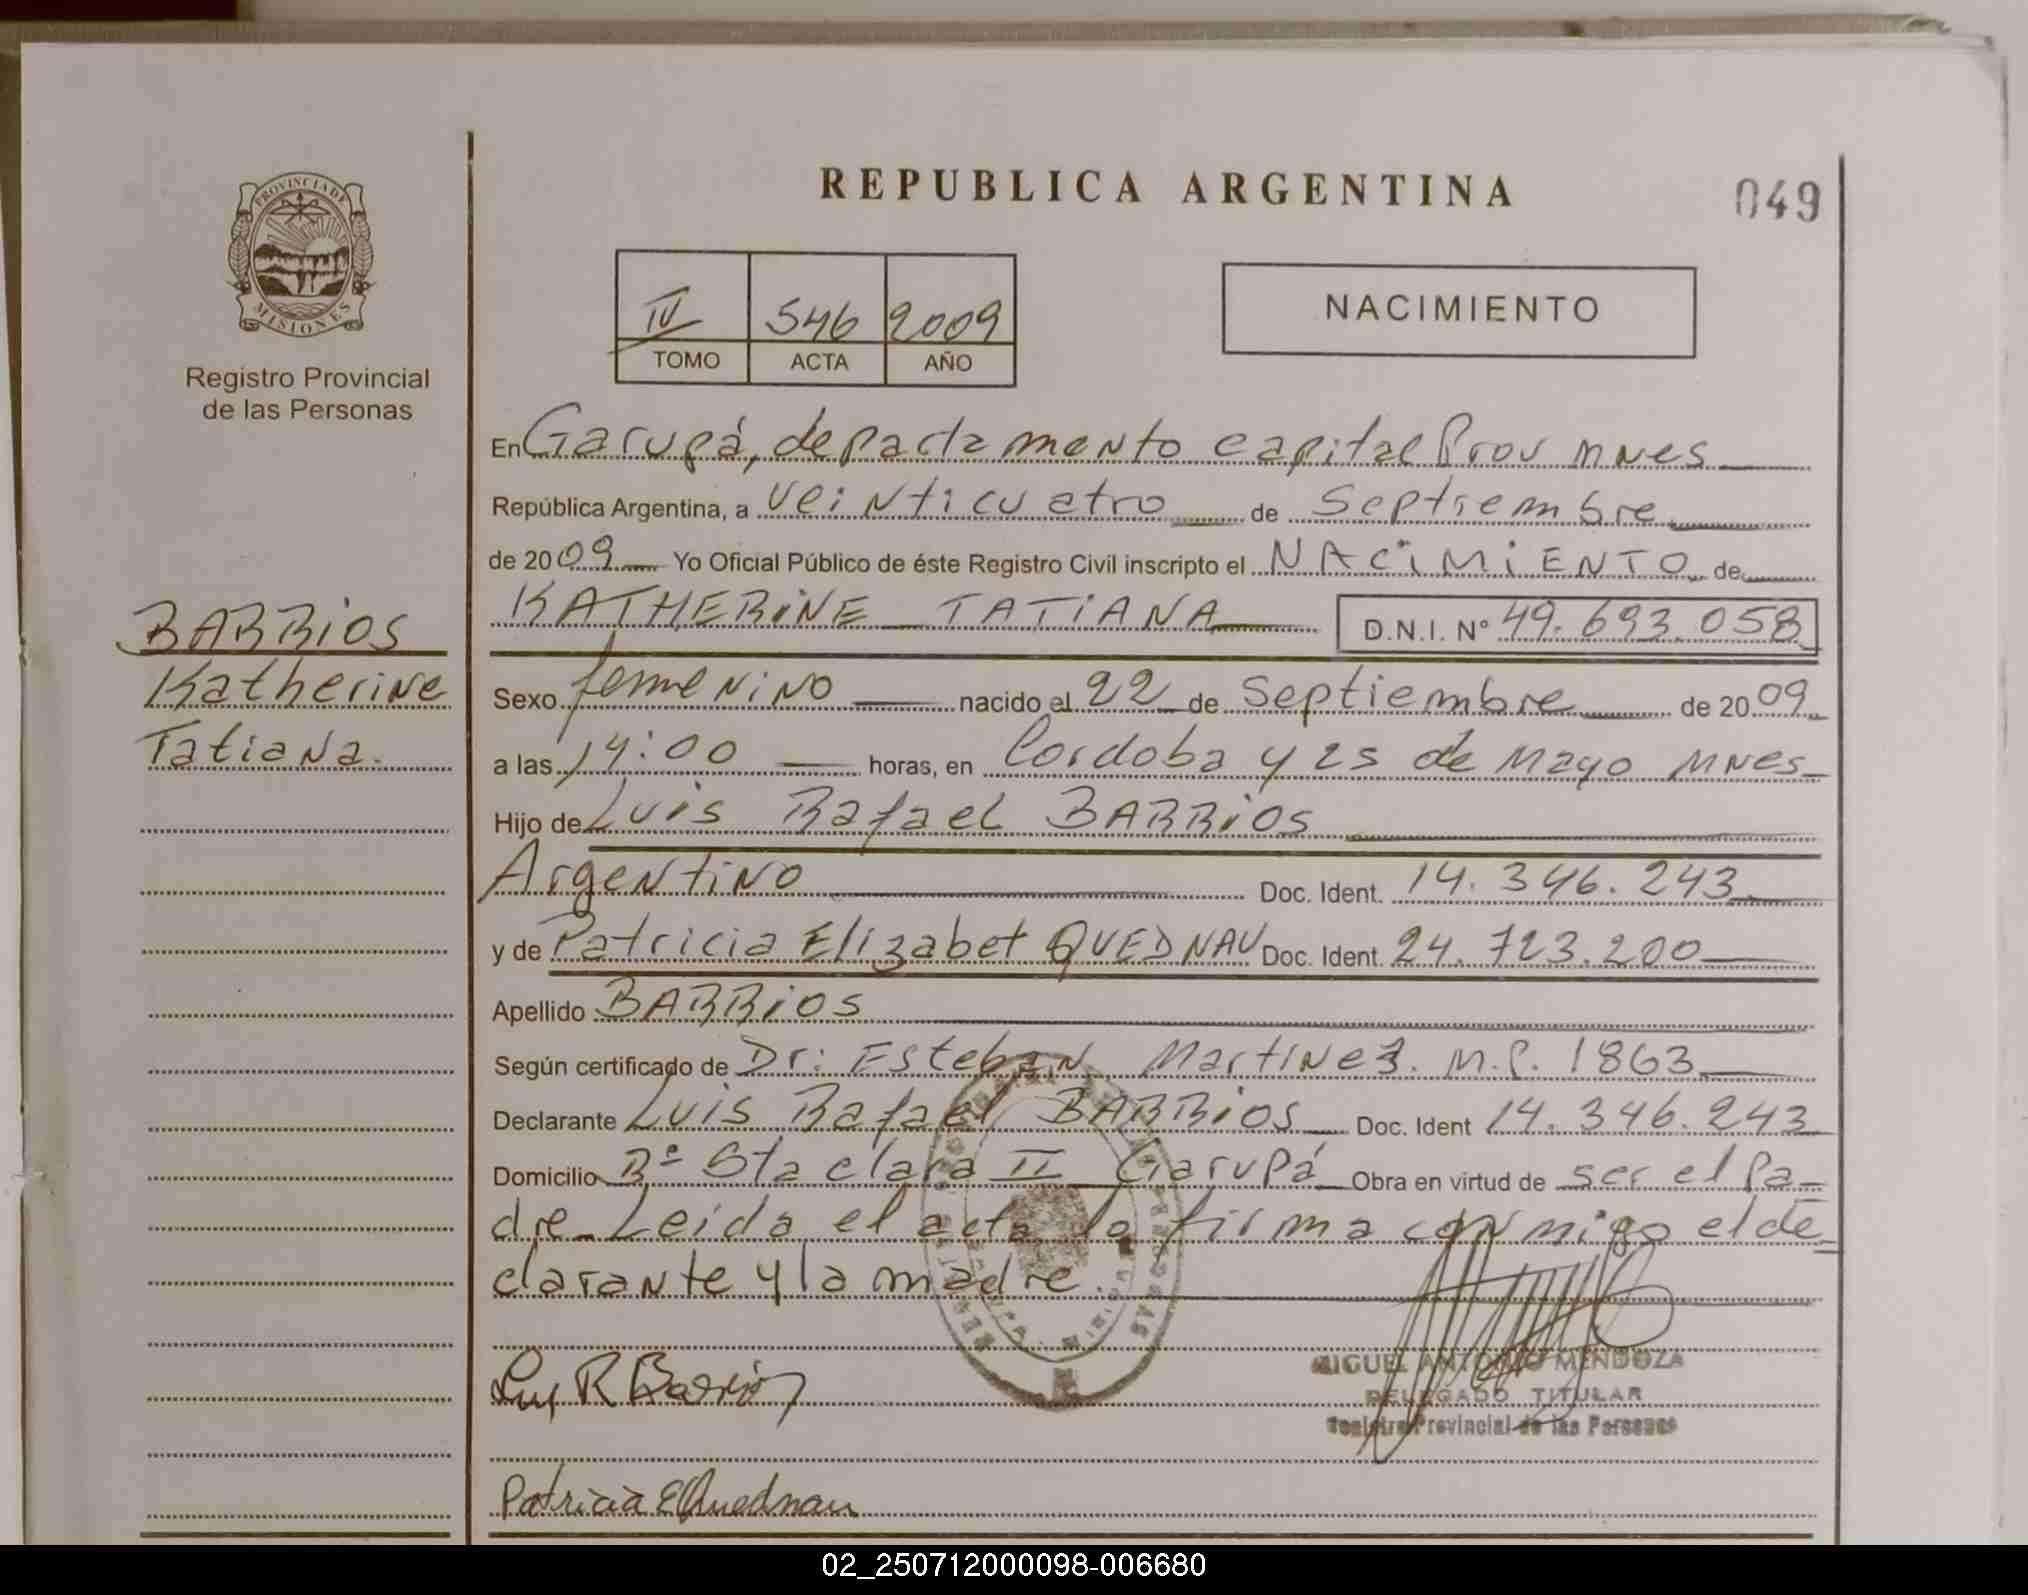 REPUBLICA ARGENTINA
049
PROVINCIA DE
MISIONES
Registro Provincial
de las Personas
IV 546 2009
TOMO ACTA AÑO
NACIMIENTO
BARRIOS
Katherine
Tatiana.
En Garupá, departamento capital Prov mnes
República Argentina, a veinticuatro de Septiembre
de 2009 Yo Oficial Público de éste Registro Civil inscripto el NACIMIENTO de
KATHERINE TATIANA D.N.I. N° 49.693.058
Sexo femenino nacido el 22 de Septiembre de 2009
a las 14:00 horas, en Cordoba y 25 de Mayo mnes
Hijo de Luis Rafael BARRIOS
Argentino Doc. Ident. 14.346.243
y de Patricia Elizabet QUEDNAU Doc. Ident. 24.723.200
Apellido BARRIOS
Según certificado de Dr: Esteban Martinez. M.P. 1863
Declarante Luis Rafael BARRIOS Doc. Ident 14.346.243
Domicilio Bº Sta clara II Garupá Obra en virtud de ser el Pa-
dre_ Leida el acta la firma conmigo el de-
clarante y la madre.
Luis R Barrios
MIGUEL ANTONIO MENDOZA
DELEGADO TITULAR
Registro Provincial de las Personas
Patricia E Quednau
02_250712000098-006680